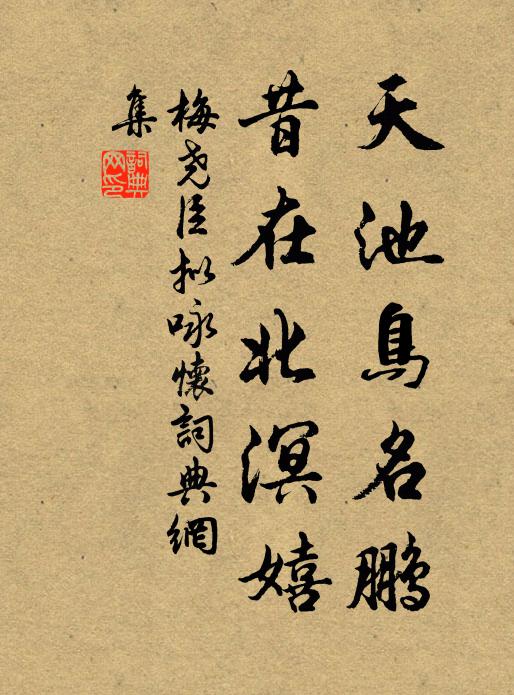 天池鳥名鵬
昔在北溟嬉
梅堯臣拟咏懷詞典網
集
詞典網印